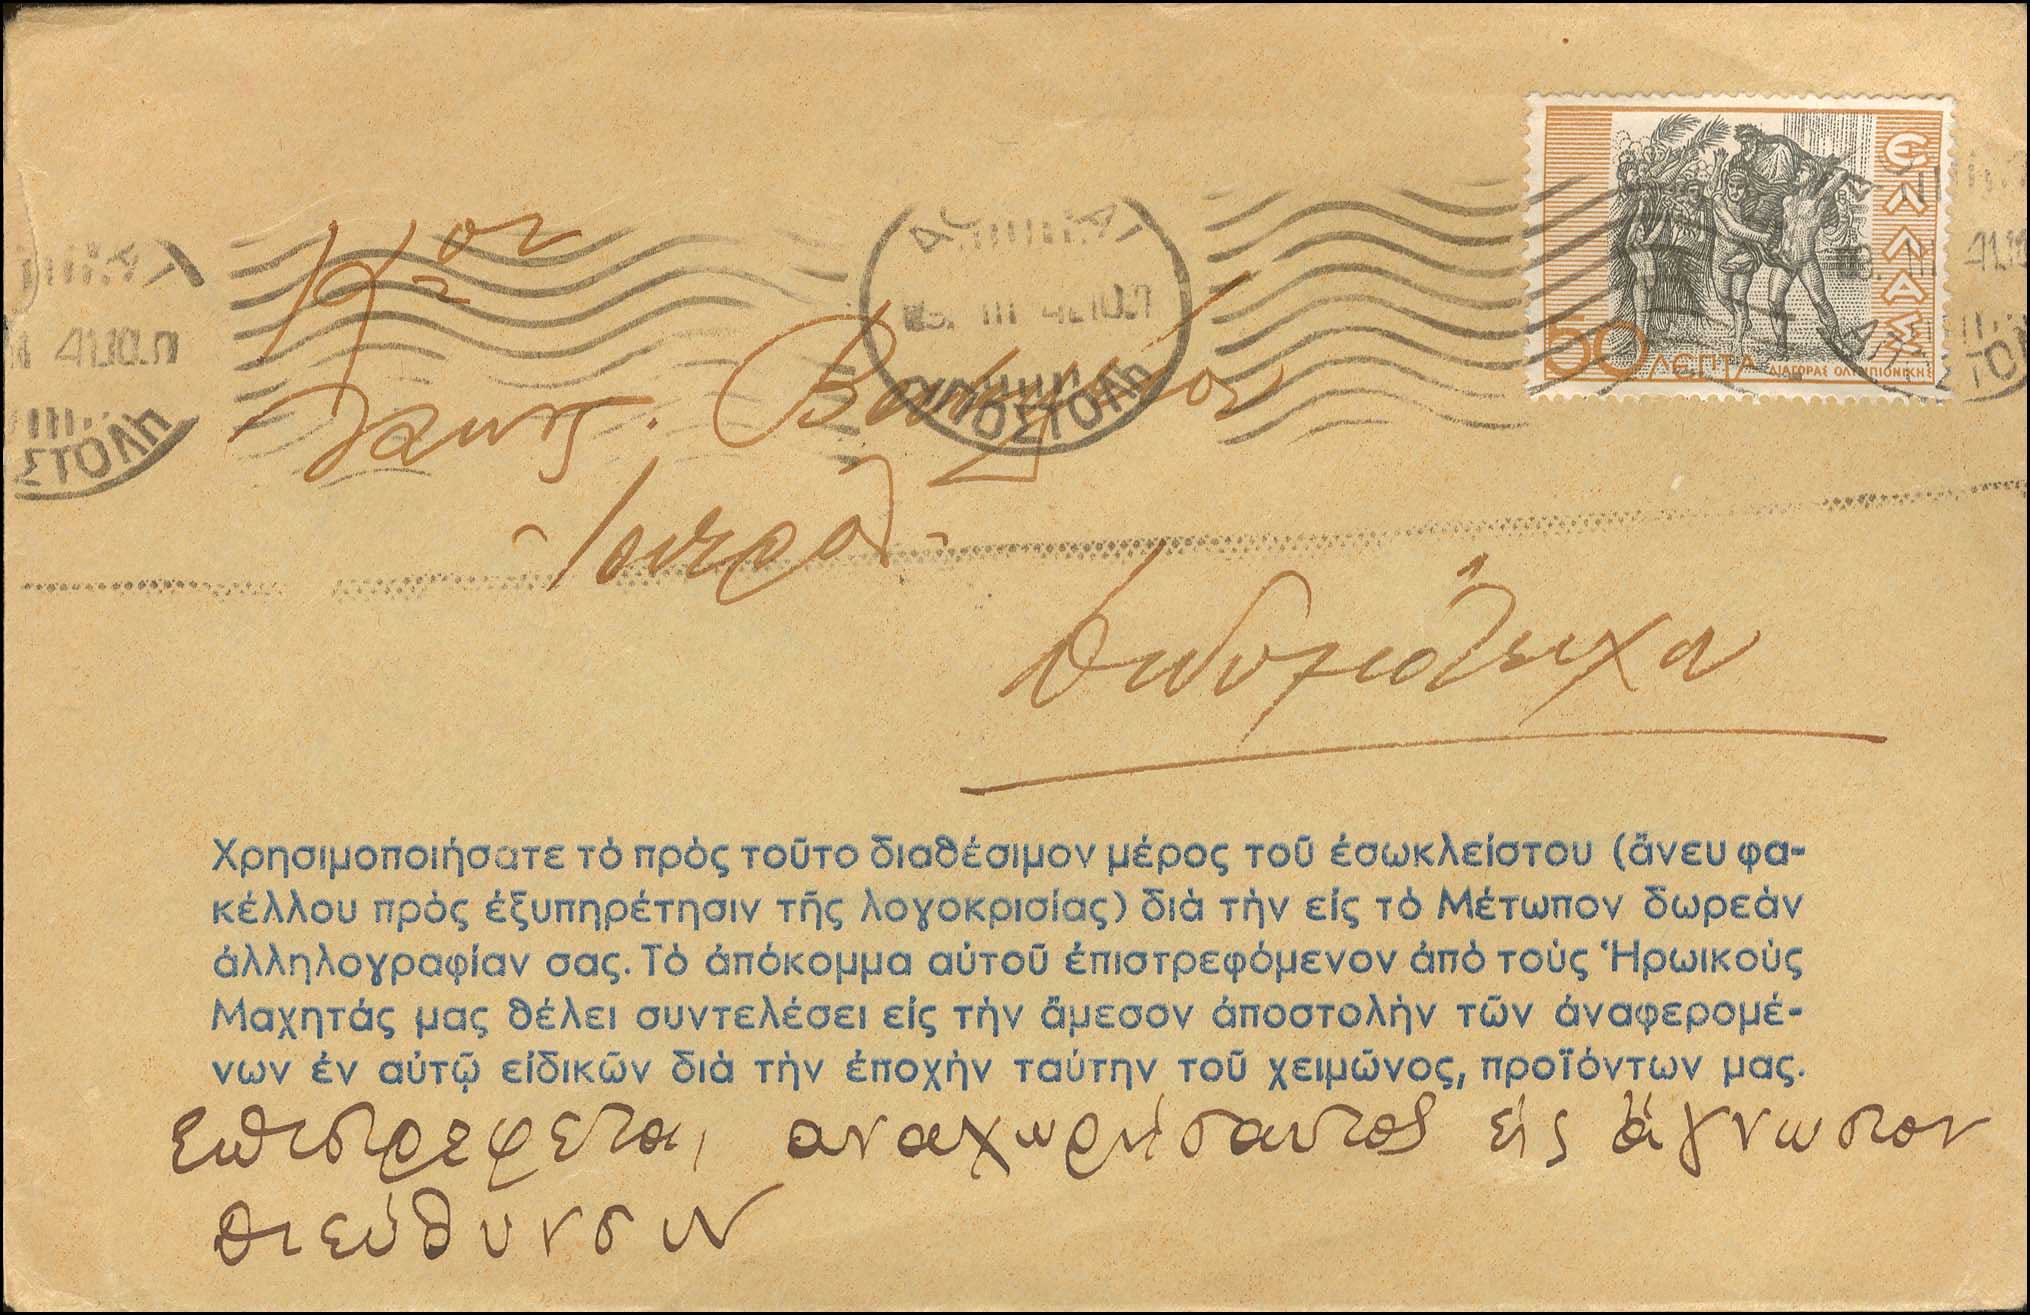 ΕΛΛΑΣ
50 ΛΕΠΤΑ
ΔΙΑΓΟΡΑΣ ΟΛΥΜΠΙΟΝΙΚΗΣ
ΑΠΟΣΤΟΛΗ
Κον
Ἰατρόν
Διδυμότειχον
Χρησιμοποιήσατε τὸ πρὸς τοῦτο διαθέσιμον μέρος τοῦ ἐσωκλείστου (ἄνευ φα-
κέλλου πρὸς ἐξυπηρέτησιν τῆς λογοκρισίας) διὰ τὴν εἰς τὸ Μέτωπον δωρεὰν
ἀλληλογραφίαν σας. Τὸ ἀπόκομμα αὐτοῦ ἐπιστρεφόμενον ἀπὸ τοὺς Ἡρωικοὺς
Μαχητάς μας θέλει συντελέσει εἰς τὴν ἄμεσον ἀποστολὴν τῶν ἀναφερομέ-
νων ἐν αὐτῷ εἰδικῶν διὰ τὴν ἐποχὴν ταύτην τοῦ χειμῶνος, προϊόντων μας.
Επιστρέφεται, αναχωρήσαντος εἰς ἄγνωστον
διεύθυνσιν